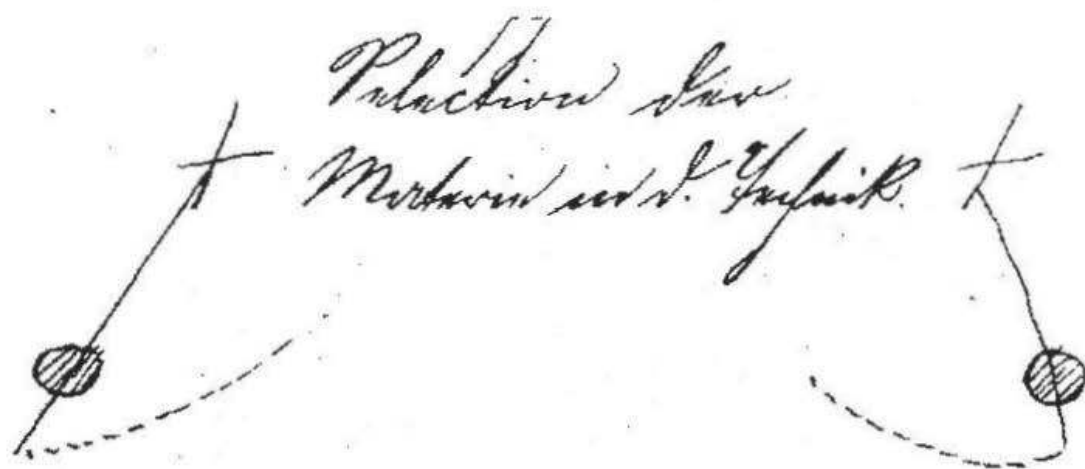 Selection der
Materie in d. Technik.